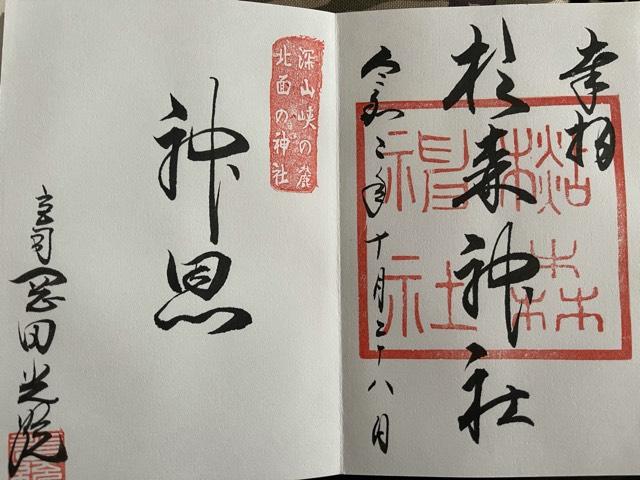 奉拝
杉森神社
杉森
神社
令和二年十月二十八日
深山峡の麓
北面の神社
神恩
宮司 岡田光